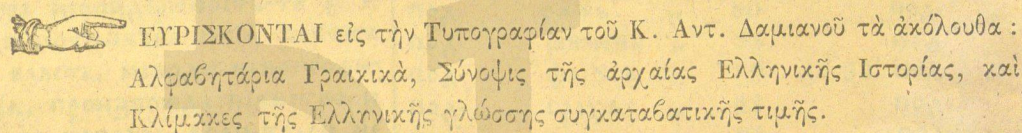 ΕΥΡΙΣΚΟΝΤΑΙ εἰς τὴν Τυπογραφίαν τοῦ Κ. Αντ. Δαμιανοῦ τὰ ἀκόλουθα :
Αλφαβητάρια Γραικικὰ, Σύνοψις τῆς ἀρχαίας Ελληνικῆς Ιστορίας, καὶ
Κλίμακες τῆς Ελληνικῆς γλώσσης συγκαταβατικῆς τιμῆς.